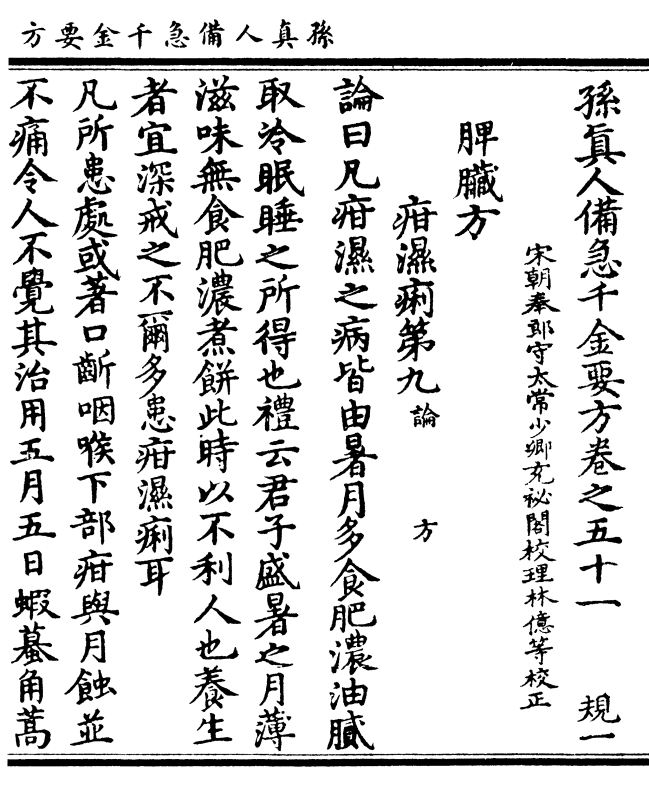 孫真人備急千金要方
孫眞人備急千金要方卷之五十一 規一
宋朝奉郎守太常少卿充祕閣校理林億等校正
脾臟方
疳濕痢第九 論 方
論曰凡疳濕之病皆由暑月多食肥濃油膩
取冷眠睡之所得也禮云君子盛暑之月薄
滋味無食肥濃煮餅此時以不利人也養生
者宜深戒之不爾多患疳濕痢耳
凡所患處或著口齗咽喉下部疳與月蝕並
不痛令人不覺其治用五月五日蝦蟇角蒿